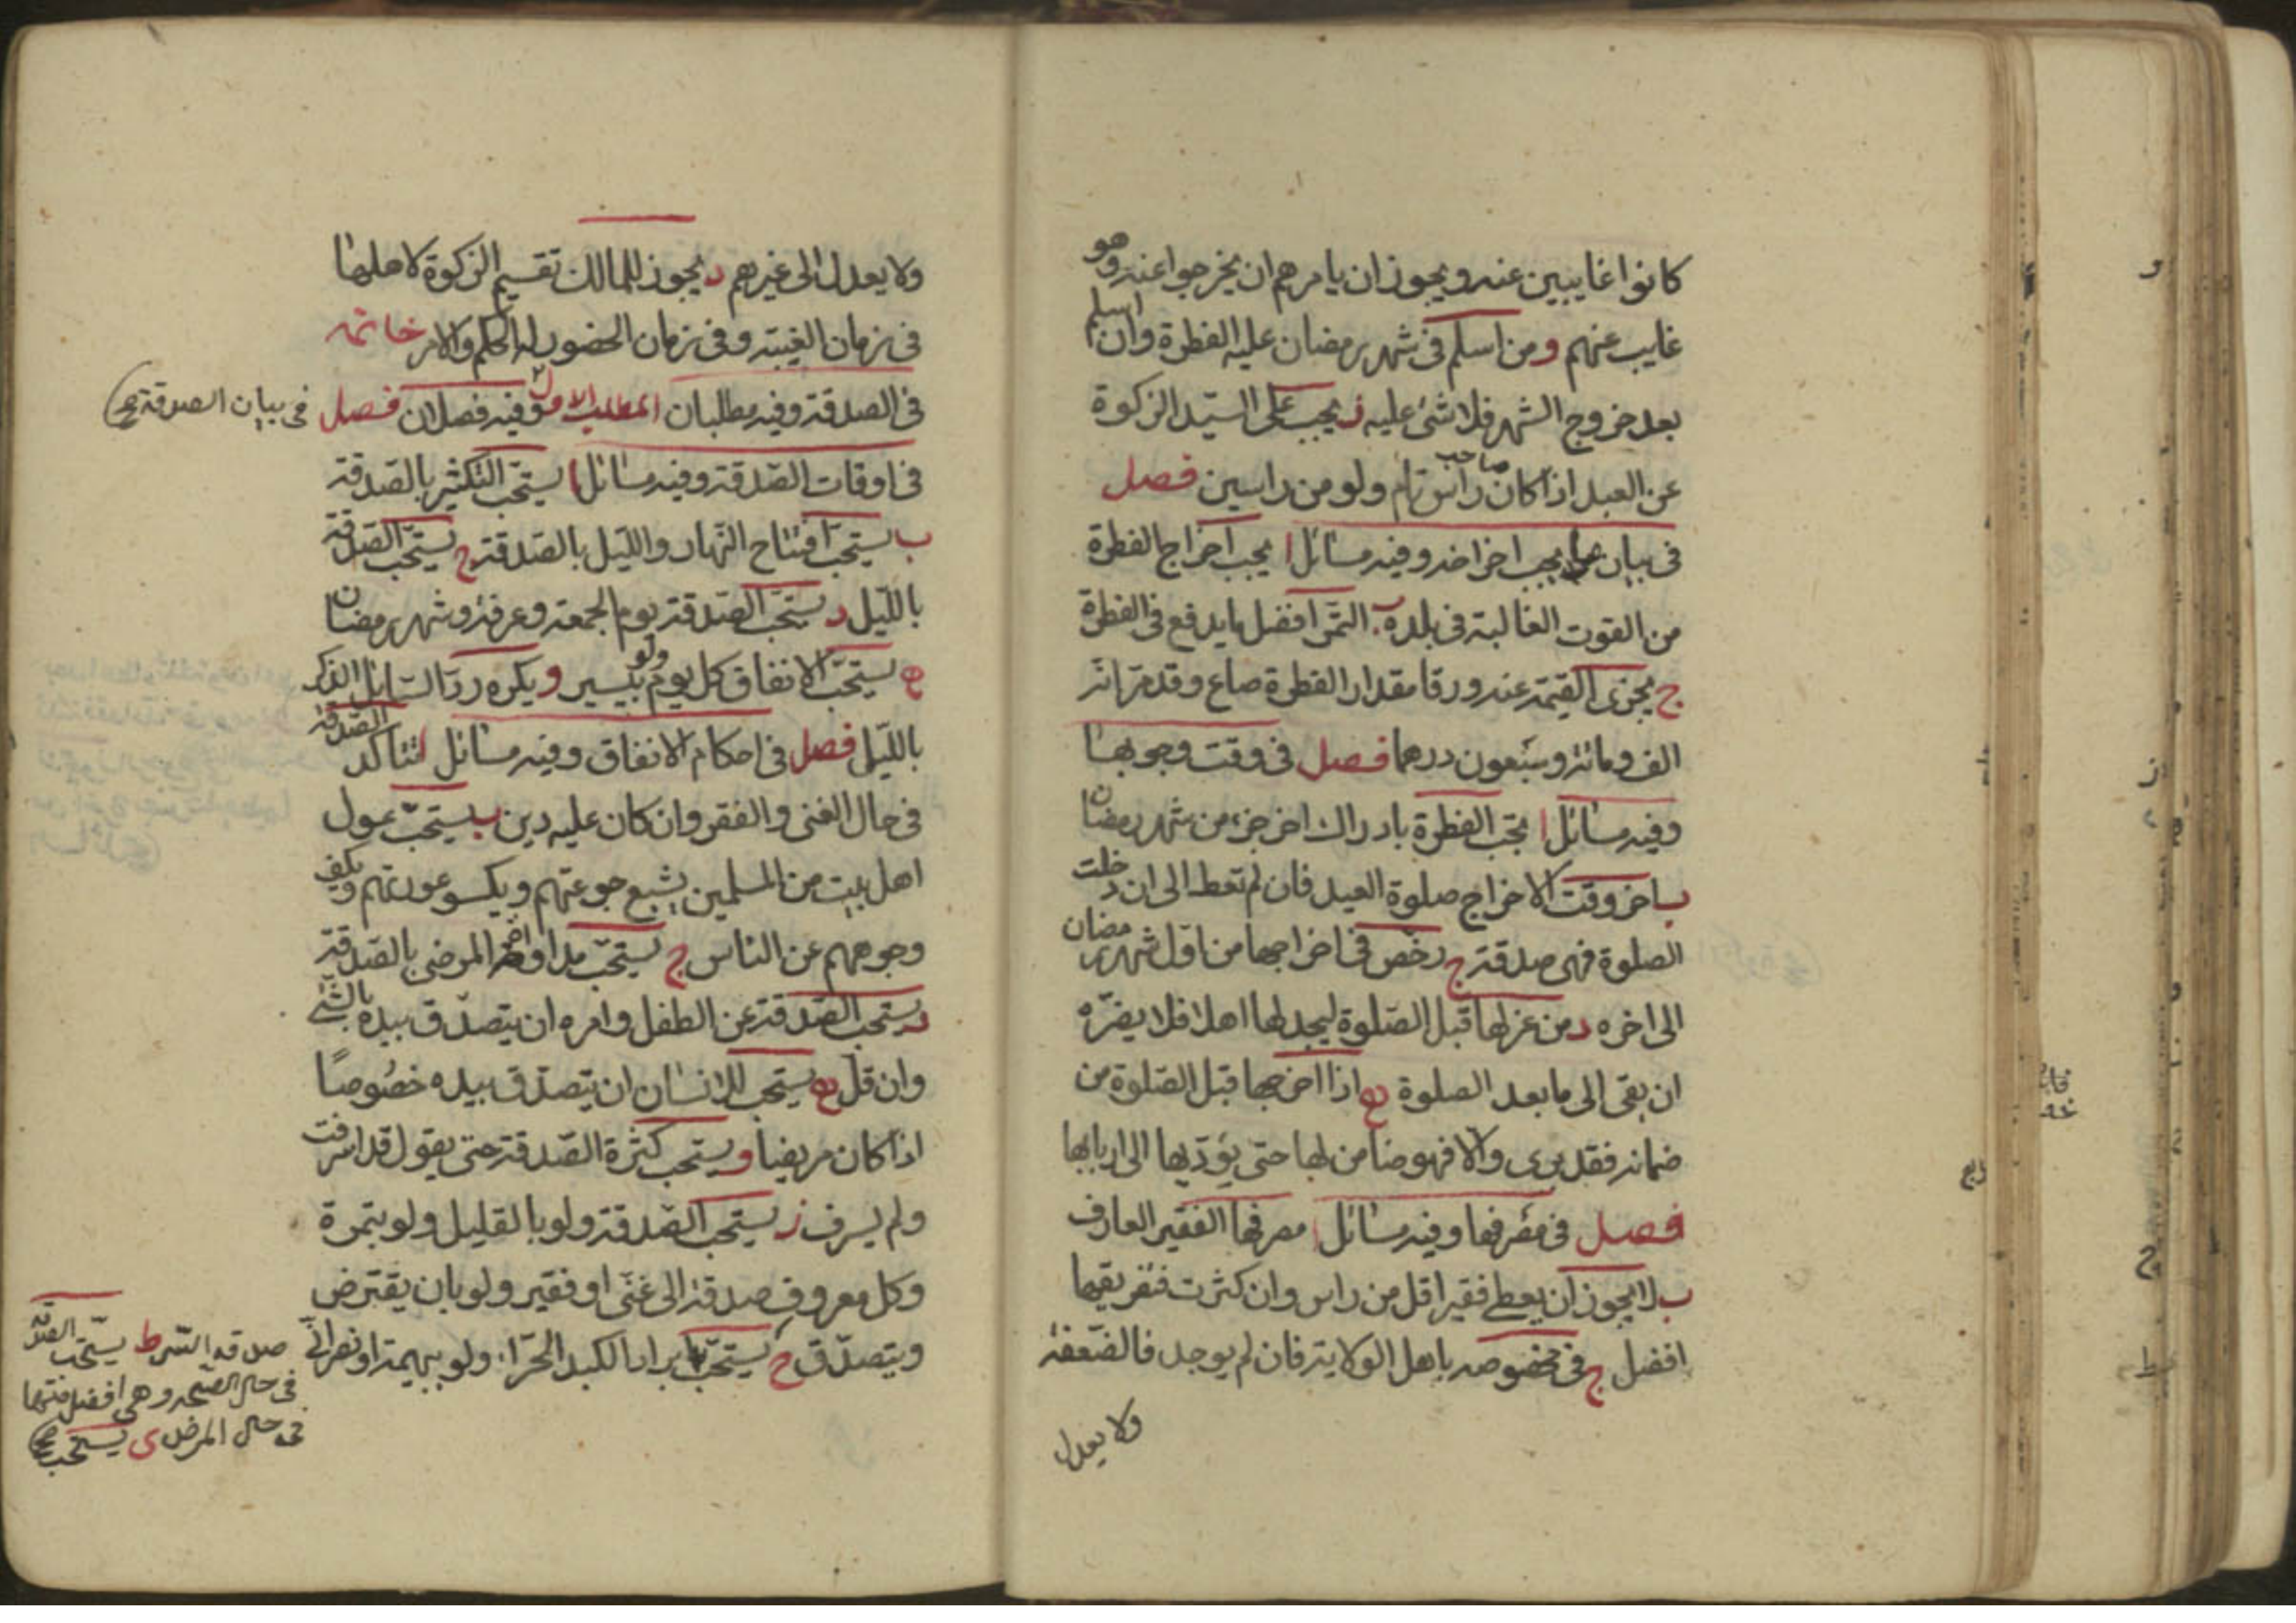 كانوا غايبين عنه ويجوز ان يامرهم ان يخرجوا عنه وهو
غايب عنهم ومن اسلم فى شهر رمضان عليه الفطرة وان اسلم
بعد خروج الشهر فلا شئ عليه ز يجب على السيّد الزكوة
عن العبد اذا كان صاحب راس تام ولو من راسين فصل
فى بيان ما يجب اخراجه وفيه مسائل ا يجب اخراج الفطرة
من القوت الغالبة فى بلده ب التمر افضل ما يدفع فى الفطرة
ج يجزى القيمة عنه ورقا مقدار الفطرة صاع وقد مرّ انه
الف ومائة وسبعون درهما فصل فى وقت وجوبها
وفيه مسائل ا تجب الفطرة بادراك اخر جزء من شهر رمضان
ب اخر وقت الاخراج صلوة العيد فان لم تعط الى ان دخلت
الصلوة فهى صدقة ج رخّص فى اخراجها من اوّل شهر رمضان
الى اخره د من عزلها قبل الصّلوة ليجد لها اهلا فلا يضرّه
ان بقى الى ما بعد الصلوة ه اذا اخرجها قبل الصّلوة من
ضمانه فقد برى والا فهو ضامن لها حتى يؤدّيها الى اربابها
فصل فى مصرفها وفيه مسائل ا مصرفها الفقير العارف
ب لا يجوز ان يعطى فقيرا اقل من راس وان كثرت فتفريقها
افضل ج فى مخصوصه باهل الولاية فان لم يوجد فالضّعفة
ولا يعدل
ولا يعدل الى غيرهم د يجوز للمالك تقسيم الزكوة لاهلها
فى زمان الغيبة وفى زمان الحضور له الحكم والامر خاتمه
فى الصدقة وفيه مطلبان المطلب الاول وفيه فصلان فصل فى بيان الصدقة صح
فى اوقات الصّدقة وفيه مسائل ا يستحبّ التكثير بالصّدقة
ب يستحبّ افتتاح النّهار والليل بالصّدقة ج يستحبّ الصّدقة
بالليل د يستحبّ الصّدقة يوم الجمعة وعرفة وشهر رمضان
ه يستحبّ الانفاق كل يوم ولو بيسير و يكره ردّ السّايل الذكر
بالليل فصل فى احكام الانفاق وفيه مسائل ا تتاكد الصّدقة
فى حال الغنى والفقر وان كان عليه دين ب يستحبّ عول
اهل بيت من المسلمين يشبع جوعتهم ويكسو عورتهم ويكف
وجوههم عن الناس ج يستحبّ مداواة المرضى بالصّدقة
د يستحب الصّدقة عن الطفل وامره ان يتصدّق بيده بالشئ
وان قلّ ه يستحب للانسان ان يتصدّق بيده خصوصًا
اذا كان مريضا و يستحب كثرة الصّدقة حتى يقول قد اسرفت
ولم يسرف ز يستحب الصّدقة ولو بالقليل ولو بتمرة
وكل معروف صدقة الى غنّى او فقير ولو بان يقترض
ويتصدّق ح يستحبّ ابراد الكبد الحرّاء ولو بهيمة او نصرانّى
صدقة السّر ط يستحبّ الصّدقة
فى حال الصّحه وهى افضل منها
فى حال المرض ى يستحب صح